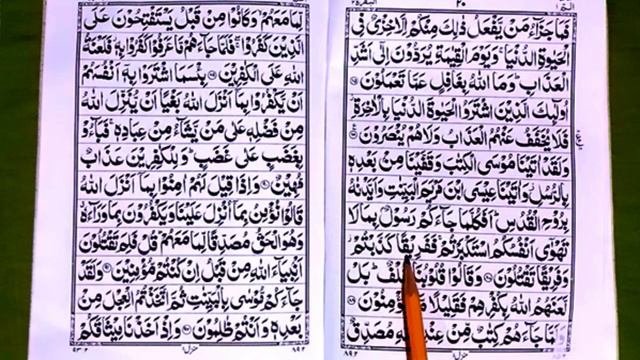 البقرة ٢
٢٠
الٓمّٓ ١
فَمَا جَزَآءُ مَنْ يَّفْعَلُ ذٰلِكَ مِنْكُمْ اِلَّا خِزْيٌ فِى
الْحَيٰوةِ الدُّنْيَا ۚ وَيَوْمَ الْقِيٰمَةِ يُرَدُّوْنَ اِلٰٓى اَشَدِّ
الْعَذَابِ ؕ وَمَا اللّٰهُ بِغَافِلٍ عَمَّا تَعْمَلُوْنَ
اُولٰٓئِكَ الَّذِيْنَ اشْتَرَوُا الْحَيٰوةَ الدُّنْيَا بِالْاٰخِرَةِ
فَلَا يُخَفَّفُ عَنْهُمُ الْعَذَابُ وَلَا هُمْ يُنْصَرُوْنَ
وَلَقَدْ اٰتَيْنَا مُوْسَى الْكِتٰبَ وَقَفَّيْنَا مِنْۢ بَعْدِهٖ
بِالرُّسُلِ وَاٰتَيْنَا عِيْسَى ابْنَ مَرْيَمَ الْبَيِّنٰتِ وَاَيَّدْنٰهُ
بِرُوْحِ الْقُدُسِ ؕ اَفَكُلَّمَا جَآءَكُمْ رَسُوْلٌۢ بِمَا لَا
تَهْوٰٓى اَنْفُسُكُمُ اسْتَكْبَرْتُمْ ۚ فَفَرِيْقًا كَذَّبْتُمْ
وَفَرِيْقًا تَقْتُلُوْنَ وَقَالُوْا قُلُوْبُنَا غُلْفٌ ؕ بَلْ
لَّعَنَهُمُ اللّٰهُ بِكُفْرِهِمْ فَقَلِيْلًا يُؤْمِنُوْنَ
جَآءَهُمْ كِتٰبٌ مِّنْ عِنْدِ اللّٰهِ مُصَدِّقٌ
منزل ١
لِّمَا مَعَهُمْ ۙ وَكَانُوْا مِنْ قَبْلُ يَسْتَفْتِحُوْنَ عَلَى
الَّذِيْنَ كَفَرُوْا ۚ فَلَمَّا جَآءَهُمْ مَّا عَرَفُوْا كَفَرُوْا بِهٖ ۫ فَلَعْنَةُ
اللّٰهِ عَلَى الْكٰفِرِيْنَ بِئْسَمَا اشْتَرَوْا بِهٖٓ اَنْفُسَهُمْ
اَنْ يَّكْفُرُوْا بِمَآ اَنْزَلَ اللّٰهُ بَغْيًا اَنْ يُّنَزِّلَ اللّٰهُ
مِنْ فَضْلِهٖ عَلٰى مَنْ يَّشَآءُ مِنْ عِبَادِهٖ ۚ فَبَآءُوْ
بِغَضَبٍ عَلٰى غَضَبٍ ؕ وَلِلْكٰفِرِيْنَ عَذَابٌ
مُّهِيْنٌ وَاِذَا قِيْلَ لَهُمْ اٰمِنُوْا بِمَآ اَنْزَلَ اللّٰهُ
قَالُوْا نُؤْمِنُ بِمَآ اُنْزِلَ عَلَيْنَا وَيَكْفُرُوْنَ بِمَا وَرَآءَهٗ
وَهُوَ الْحَقُّ مُصَدِّقًا لِّمَا مَعَهُمْ ؕ قُلْ فَلِمَ تَقْتُلُوْنَ
اَنْۢبِيَآءَ اللّٰهِ مِنْ قَبْلُ اِنْ كُنْتُمْ مُّؤْمِنِيْنَ وَلَقَدْ
جَآءَكُمْ مُّوْسٰى بِالْبَيِّنٰتِ ثُمَّ اتَّخَذْتُمُ الْعِجْلَ مِنْۢ
بَعْدِهٖ وَاَنْتُمْ ظٰلِمُوْنَ وَاِذْ اَخَذْنَا مِيْثَاقَكُمْ
منزل ١